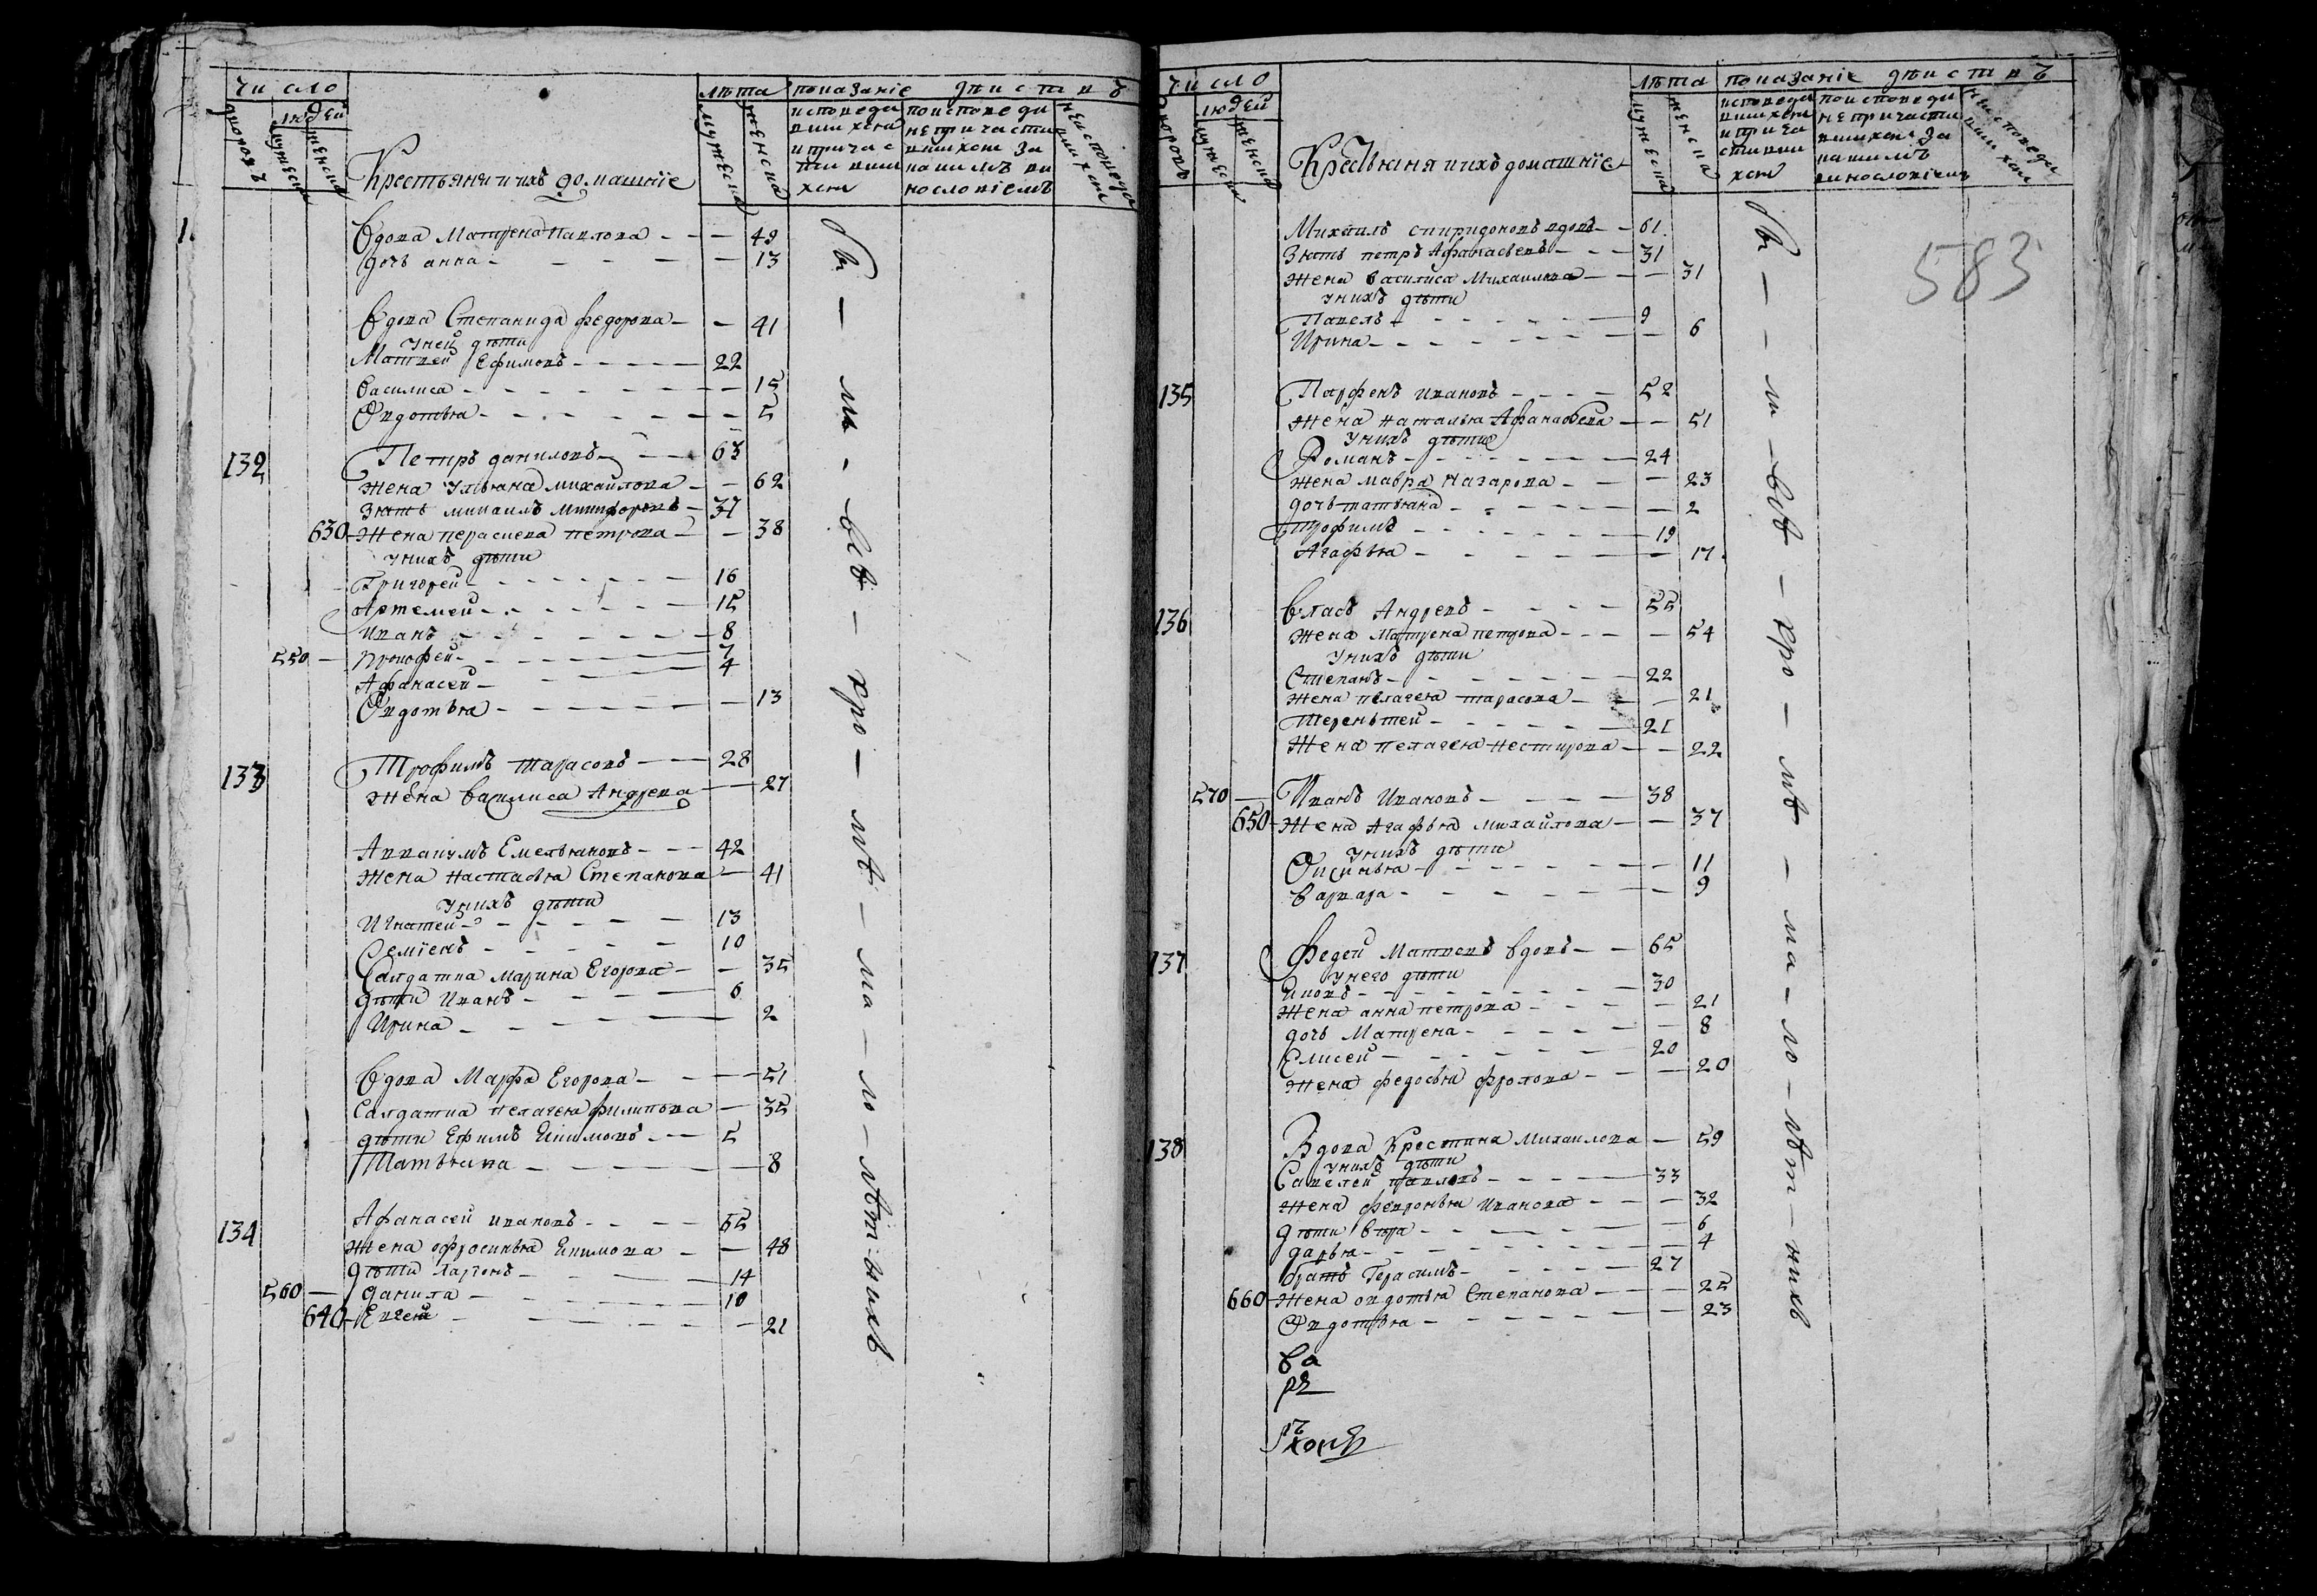 Число
людей
дворовъ
мужеска
женска
Крестьяня и ихъ домашніе
лѣта
мужеска
женска
показаніе дѣиствъ
исповеда
вшихся
и причас
тивши
хся
по исповеди
не причасти
вшихся за
какимъ ви
нословіемъ
неисповеда
вшихся
Вдова Матрена Павлова - - - 49
дочь анна - - - - - 13
Вдова Степанида федорова - - 41
у ней дѣти
Матвей Ефимовъ - - - - 22
Василиса - - - - - - - 15
Овдотья - - - - - - - 5
132 Петръ даниловъ - - - 63
жена Ульяна михаилова - - 62
Зять михаилъ никифоровъ - 37
630 - жена парасцева петрова - - 38
у нихъ дѣти
Григорей - - - - - - 16
Артемей - - - - - - 15
Иванъ - - - - - - 8
550 - прокофей - - - - - 7
Афанасей - - - - - 4
Овдотья - - - - - - 13
133 Трофимъ тарасовъ - - 28
жена василиса Андрева - - 27
Аввакумъ Емельяновъ - - 42
жена настасья Степанова - 41
у нихъ дѣти
Игнатей - - - - - 13
Семіенъ - - - - - 10
Салдатка марина Егорова - - 35
дѣти Иванъ - - - - 6
Ирина - - - - - 2
Вдова Марфа Егорова - - - 51
Салдатка пелагея филипова - 35
дѣти Ефимъ Екимовъ - - 5
Татьяна - - - - - 8
134 Афанасей ивановъ - - - 65
жена офросинья Екимова - - 48
дѣти Ларіонъ - - - - 14
560 - данила - - - - - 10
640 - Евгеня - - - - - - 21
Число
людей
дворовъ
мужеска
женска
Крестьяня и ихъ домашніе
лѣта
мужеска
женска
показаніе дѣиствъ
исповеда
вшихся
и прича
стивши
хся
по исповеди
не причасти
вшихся за
какимъ
винословіемъ
неисповеда
вшихся
583
Михаилъ спиридоновъ вдовъ - - 61
Зять петръ Афанасьевъ - - - 31
жена василиса Михаилова - - - 31
у нихъ дѣти
Павелъ - - - - - - 9
Ирина - - - - - - - 6
135 Парфенъ ивановъ - - - - 52
жена наталья Афанасьева - - 51
у нихъ дѣти
Романъ - - - - - - - 24
жена мавра назарова - - - 23
дочь татьяна - - - - - - 2
Трофимъ - - - - - - - 19
Агафья - - - - - - 17
136 Власъ Андревъ - - - - 55
жена Матрена петрова - - - - 54
у нихъ дѣти
Степанъ - - - - - - 22
жена пелагея тарасова - - - 21
Терентей - - - - - - 21
Жена пелагея нестирова - - 22
570 - Иванъ Ивановъ - - - - 38
650 - Жена Агафья михаилова - - 37
у нихъ дѣти
Оксинья - - - - - - - 11
варвара - - - - - - - 9
137 федей Матвевъ вдовъ - - 65
у него дѣти
- - - - - - - 30
жена анна петрова - - - - - 21
дочь Матрена - - - - - - 8
Елисей - - - - - - 20
жена федосья фролова - - - 20
138 Вдова Крестина михаилова - 59
у нихъ дѣти
Савелей павловъ - - - - 33
жена февронья Иванова - - - 32
дѣти Вера - - - - - - 6
дарья - - - - - - - 4
братъ Герасимъ - - - - - 27
660 - жена овдотья Степанова - - - 25
Овдотья - - - - - - 23